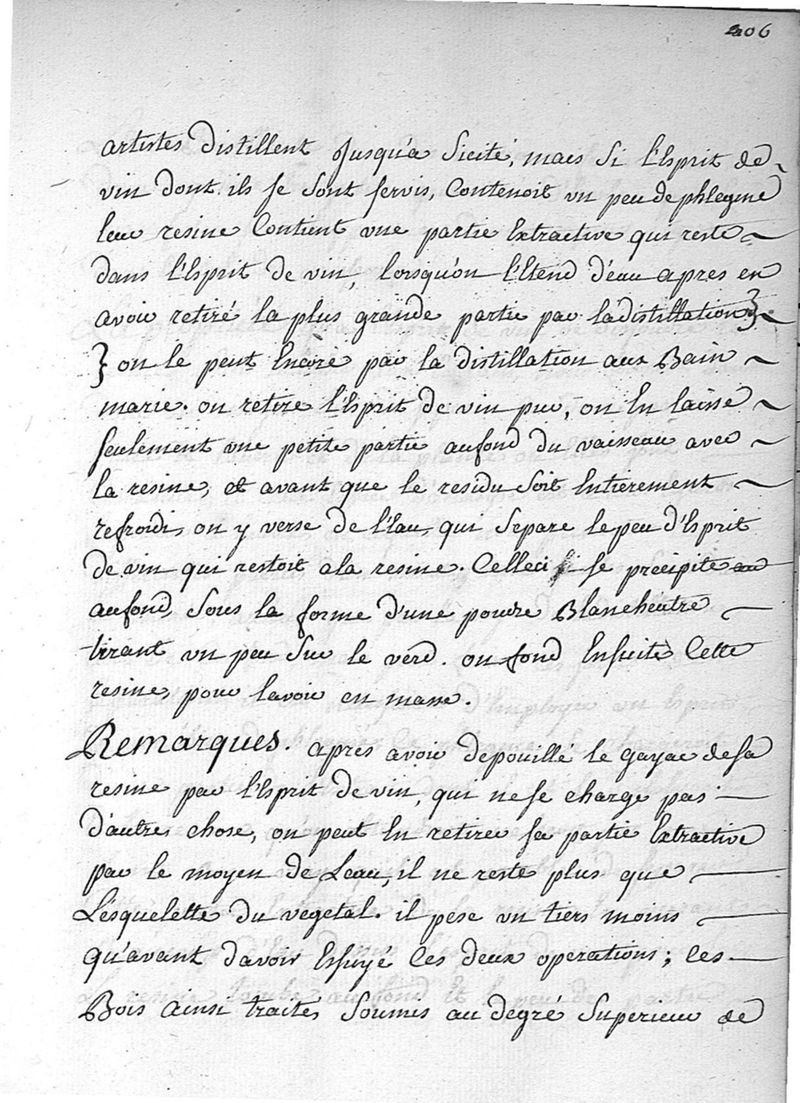 206
artistes distillent Jusqu'a Sicité, mais Si l'Esprit de
vin dont ils se sont servis, Contenoit un peu de phlegme
leur resine Contient une partie Extractive qui reste
dans l'Esprit de vin, lorsqu'on l'Etend d'eau apres en
avoir retiré la plus grande partie par la distillation }
} on le peut Encore par la distillation aux Bain
marie. on retire l'Esprit de vin pur, on En laisse
seulement une petite partie aufond du vaisseau avec
la resine, et avant que le residu Soit Entierement
refroidi, on y verse de l'Eau, qui Separe le peu d'Esprit
de vin qui restoit a la resine. Celleci se précipite
aufond, Sous la forme d'une poudre Blancheatre
tirant un peu Sur le verd. on fond Ensuite Cette
resine, pour lavoir en masse.
Remarques. apres avoir depouillé le gayac de sa
resine par l'Esprit de vin, qui ne se charge pas
d'autre chose, on peut En retirer sa partie Extractive
par le moyen de Leau, il ne reste plus que
L'esquelette du vegetal. il pese un tiers moins
qu'avant d'avoir Essuyé Ces deux operations; Ces
Bois Ainsi traités, Soumis au degré Superieur de